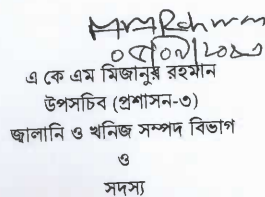 MMRahman
এ কে এম মিজানুর রহমান
উপসচিব (প্রশাসন-৩)
জ্বালানি ও খনিজ সম্পদ বিভাগ
ও
সদস্য